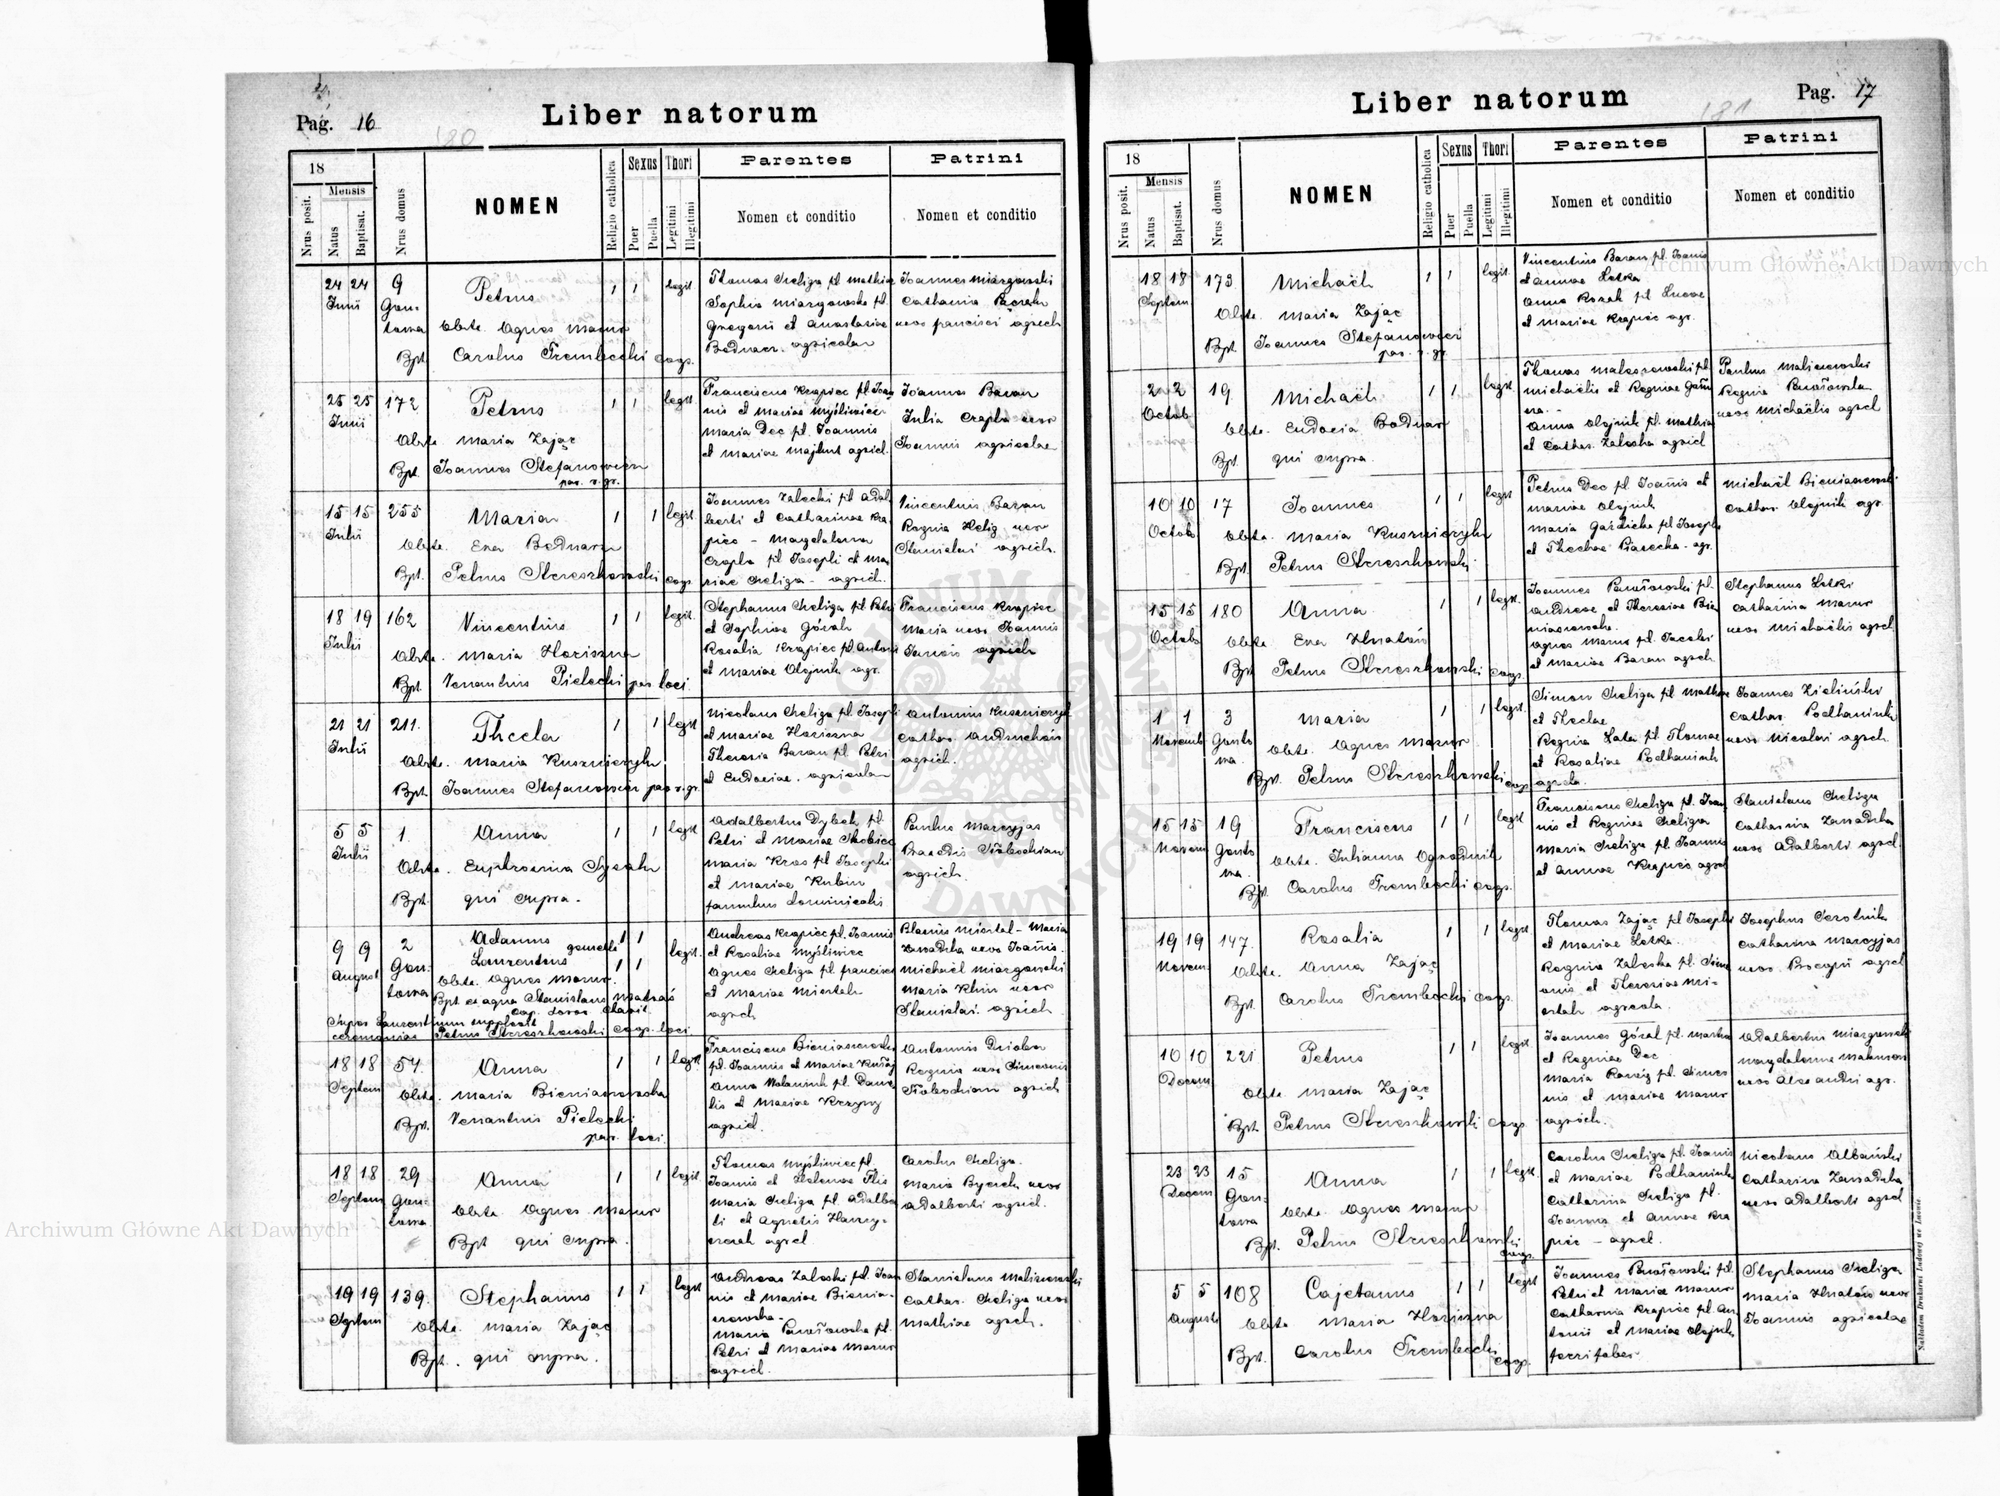 Pag. 16
180
Liber natorum
18
Mensis
Nrus posit.
Natus
Baptisat.
Nrus domus
NOMEN
Religio catholica
Sexus
Puer
Puella
Thori
Legitimi
Illegitimi
Parentes
Nomen et conditio
Patrini
Nomen et conditio
24 24 9 Petrus 1 1 legit
Junii
Obste. Agnes Mazur
Bpt. Carolus Trembecki coop.
Thomas Cheliga fil. Mathiae
Sophia Miazgowska fil.
Gregorii et Anastasiae
Bednarz. agricolae
Joannes Miazgowski
uxor Francisci agricol
25 25 172 Petrus 1 1 legit
Junii
Obste Maria Zając
Bpt. Joannes Stefanowicz
par. r. gr.
Franciscus Krapiec fil. Joan
nis et Mariae Myśliwiec
Maria Dec fil. Joannis
et Mariae Majkut agricol.
Joannes Baran
Julia Czapla uxor
Joannis agricolae
15 15 255 Maria 1 1 legit.
Julii
Obste. Eva Bednarz
Bpt. Petrus Streszkowski coop.
Joannes Zaleski fil. Adal
berti et Catharinae Kra
piec - Magdalena
Czapla fil. Josephi et Ma
riae Cheliga - agricol.
Vincentius Baran
Regina Heliz uxor
Stanislai agricol.
18 19 162 Vincentius 1 1 legit.
Julii
Obste. Maria Horiszna
Bpt. Venantius Pielecki par. loci
Stephanus Cheliga fil. Petri
et Sophiae Góral
Rosalia Krapiec fil. Antoni
et Mariae Olejnik agr.
Franciscus Krapiec
Maria uxor Joannis
agricol
21 21 211. Thecla 1 1 legit
Julii
Obste. Maria Kuszniczyk
Bpt. Joannes Stefanowicz par. r. gr.
Nicolaus Cheliga fil. Josephi
et Mariae Horiszna
Theresia Baran fil. Petri
et Eudociae. agricolae
Antonius Kuszniczyk
Cathar. Andruchów
agricol.
5 5 1. Anna 1 1 legit
Julii
Obste. Euphrosina Sysak
Bpt. qui supra.
Adalbertus Dybek fil.
Petri et Mariae Skobiec
Maria Kras fil. Josephi
et Mariae Kubin
famulus dominicalis
Paulus Marcyjas
agricol.
9 9 2 Adamus gemelli 1 1 legit.
August Laurentius 1 1
Obste. Agnes Mazur.
Bpt ex aqua Stanislaus Matraś
Super Laurentium supplevit
ceremonias Petrus Streszkowski coop. loci
Andreas Krapiec fil. Joannis
et Rosaliae Myśliwiec
Agnes Cheliga fil Francisci
et Mariae Miertek
agricol
Blasius Miertal - Maria
Zawadzka uxor Joannis.
Michaël Miazgowski
Maria Klin uxor
Stanislai agricol.
18 18 54. Anna 1 1 legit
Septem
Obste. Maria Bieniaszewska
Bpt. Venantius Pielecki
par. loci.
Franciscus Bieniaszewski
fil. Joannis et Mariae
Anna Wolanink fil. Danie
lis et Mariae
agricol.
Antonius Dzioba
Regina uxor Simeonis
agricol
18 18 29 Anna 1 1 legit.
Septem
Obste. Agnes Mazur
Bpt qui supra.
Thomas Myśliwiec fil.
Joannis et Helenae Flis
Maria Cheliga fil. Adalber
ti et Agnetis
agricol
Carolus Cheliga.
Maria uxor
Adalberti agricol.
19 19 139. Stephanus 1 1 legit
Septem
Obste. Maria Zając
Bpt. qui supra.
Andreas Zaleski fil. Joan
nis et Mariae Bienia-
szewska.
Maria fil.
Petri et Mariae Mazur
agricol.
Stanislaus Maliszewski
Cathar. Cheliga uxor
Mathiae agricol.
Liber natorum
181
Pag. 17
18
Mensis
Nrus posit.
Natus
Baptisat.
Nrus domus
NOMEN
Religio catholica
Sexus
Puer
Puella
Thori
Legitimi
Illegitimi
Parentes
Nomen et conditio
Patrini
Nomen et conditio
18 18 173 Michaël 1 1 legit.
Septem
Obste. Maria Zając
Bpt. Joannes Stefanowicz
par. r. gr.
Vincentius Baran fil. Joannis
et Annae Lotka
Anna Kozak fil. Lucae
et Mariae Krapiec agr.
2 2 19 Michaël 1 1 legit
Octob
Obste. Eudocia Bodnar
Bpt. qui supra.
Michaëlis et Reginae
Anna Olejnik fil. Mathiae
et Cathar. Zaleska agricol
Paulus Maliszewski
Regina
uxor Michaëlis agricol
10 10 17 Joannes 1 1 legit
Octob
Obste. Maria Kuszniczyk
Bpt. Petrus Streszkowski.
Petrus Dec fil Joannis et
Mariae Olejnik
Maria fil Joseph
et Theclae Piasecka. agr.
Michaël Bieniaszewski.
Cathar. Olejnik agr.
15 15 180 Anna 1 1 legit.
Octob
Obste Eva Hnatów
Bpt. Petrus Streszkowski coop.
Andreae et Theresiae Bie
niaszewska.
Agnes Mazur fil. Jacobi
et Mariae Baran agricol.
Stephanus Lotki
Catharina Mazur
uxor Michaëlis agricol
1 1 3 Maria 1 1 legit.
Novemb
Obste. Agnes Mazur
Bpt. Petrus Streszkowski coop
Simon Cheliga fil Mathiae
et Theclae
Regina fil Thomae
et Rosaliae Podhaniuk
agricola.
Joannes Zieliński
Cathar. Podhaniuk
uxor Nicolai agricol.
15 15 19 Franciscus 1 1 legit
Novem
Obste. Julianna Ogrodnik
Bpt. Carolus Trembecki coop.
Franciscus Cheliga fil. Joan
nis et Reginae Cheliga
Maria Cheliga fil. Joannis
et Annae Krapiec agricol
Stanislaus Cheliga
Catharina Zawadzka
uxor Adalberti agricol.
19 19 147. Rosalia 1 1 legit
Novem
Obste. Anna Zając
Bpt. Carolus Trembecki coop.
Thomas Zając fil Josephi
et Mariae Lotka.
Regina Zaleska fil. Sime
onis et Theresiae Mi-
ertek agricola.
Josephus Serotnik
Catharina Marcyjas
uxor. Procopii agricol
10 10 221 Petrus 1 1 legit
Decem
Obste Maria Zając
Bpt. Petrus Streszkowski coop.
Joannes Góral fil. Mathiae
et Reginae Dec
Maria fil. Simeo
nis et Mariae Mazur
agricol.
Adalbertus Miazgowski
Magdalena
uxor Alexandri agr.
23 23 15 Anna 1 1 legit.
Decem
Obste. Agnes Mazur
Bpt. Petrus Streszkowski
coop.
Carolus Cheliga fil. Joannis
et Mariae Podhaniuk
Catharina Cheliga fil.
Joannis et Annae Kra
piec - agricol.
Nicolaus Albański
Catharina Zawadzka
uxor Adalberti agricol
5 5 108 Cajetanus 1 1 legit
Augusti
Obste Maria Horiszna
Bpt. Carolus Trembecki
coop.
Petri et Mariae Mazur
Catharina Krapiec fil. An
tonii et Mariae Olejnik
ferrifaber
Stephanus Cheliga
Maria Hnatów uxor
Joannis agricolae
Nakładem Drukarni Ludowej we Lwowie
Archiwum Główne Akt Dawnych
Archiwum Główne Akt Dawnych
ARCHIWUM GŁÓWNE AKT DAWNYCH